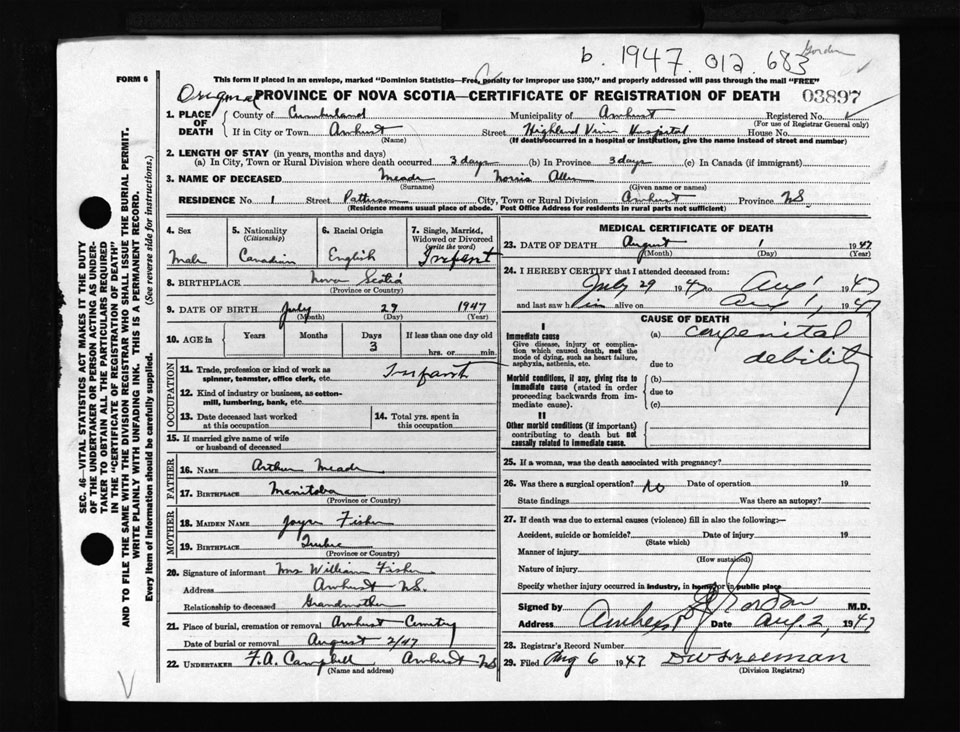 b. 1947. 012 683
Gordon
FORM 6
This form if placed in an envelope, marked "Dominion Statistics—Free, penalty for improper use $300," and properly addressed will pass through the mail "FREE"
Original PROVINCE OF NOVA SCOTIA—CERTIFICATE OF REGISTRATION OF DEATH 03897
1. PLACE OF DEATH County of Cumberland Municipality of Amherst Registered No.
(For use of Registrar General only)
If in City or Town Amherst Street Highland View Hospital House No.
(Name) (If death occurred in a hospital or institution, give the name instead of street and number)
2. LENGTH OF STAY (in years, months and days)
(a) In City, Town or Rural Division where death occurred 3 days (b) In Province 3 days (c) In Canada (if immigrant)
3. NAME OF DECEASED Meade Norris Allen
(Surname) (Given name or names)
RESIDENCE No 1 Street Patterson City, Town or Rural Division Amherst Province NS.
(Residence means usual place of abode. Post Office Address for residents in rural parts not sufficient)
4. Sex Male
5. Nationality (Citizenship) Canadian
6. Racial Origin English
7. Single, Married, Widowed or Divorced (write the word) Infant
8. BIRTHPLACE Nova Scotia
(Province or Country)
9. DATE OF BIRTH July 29 1947
(Month) (Day) (Year)
10. AGE in Years Months Days 3 If less than one day old
hrs. or min.
OCCUPATION
11. Trade, profession or kind of work as spinner, teamster, office clerk, etc. Infant
12. Kind of industry or business, as cotton-mill, lumbering, bank, etc.
13. Date deceased last worked at this occupation
14. Total yrs. spent in this occupation
15. If married give name of wife or husband of deceased
FATHER
16. NAME Arthur Meade
17. BIRTHPLACE Manitoba
(Province or Country)
MOTHER
18. MAIDEN NAME Joyce Fisher
19. BIRTHPLACE Quebec
(Province or Country)
20. Signature of informant Mrs William Fisher
Address Amherst NS.
Relationship to deceased Grandmother
21. Place of burial, cremation or removal Amherst Cemetry
Date of burial or removal August 2/47
22. UNDERTAKER F.A. Campbell Amherst NS
(Name and address)
MEDICAL CERTIFICATE OF DEATH
23. DATE OF DEATH August 1 1947
(Month) (Day) (Year)
24. I HEREBY CERTIFY that I attended deceased from:
July 29 1947 to Aug 1 1947
and last saw him alive on Aug 1, 1947
CAUSE OF DEATH
I
Immediate cause
Give disease, injury or complication which caused death, not the mode of dying, such as heart failure, asphyxia, asthenia, etc.
(a) congenital debility
due to
Morbid conditions, if any, giving rise to immediate cause (stated in order proceeding backwards from immediate cause).
(b)
due to
(c)
II
Other morbid conditions (if important) contributing to death but not causally related to immediate cause.
25. If a woman, was the death associated with pregnancy?
26. Was there a surgical operation? No Date of operation 19
State findings Was there an autopsy?
27. If death was due to external causes (violence) fill in also the following:—
Accident, suicide or homicide? Date of injury 19
(State which)
Manner of injury
(How sustained)
Nature of injury
Specify whether injury occurred in industry, in home or in public place
Signed by Gordon M.D.
Address Amherst Date Aug. 2, 1947
28. Registrar's Record Number
29. Filed Aug 6 1947 DW Freeman
(Division Registrar)
SEC. 46—VITAL STATISTICS ACT MAKES IT THE DUTY
OF THE UNDERTAKER OR PERSON ACTING AS UNDER-
TAKER TO OBTAIN ALL THE PARTICULARS REQUIRED
IN THE "CERTIFICATE OF REGISTRATION OF DEATH"
AND TO FILE THE SAME WITH THE DIVISION REGISTRAR WHO SHALL ISSUE THE BURIAL PERMIT.
WRITE PLAINLY WITH UNFADING INK. THIS IS A PERMANENT RECORD.
Every item of information should be carefully supplied. (See reverse side for instructions.)